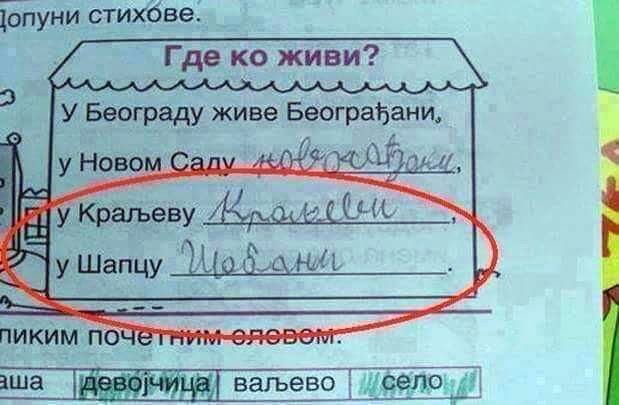 Допуни стихове.
Где ко живи?
У Београду живе Београђани,
у Новом Саду новосађани,
у Краљеву Краљеви,
у Шапцу Шабани.
ликим почетним словом.
аша девојчица ваљево село